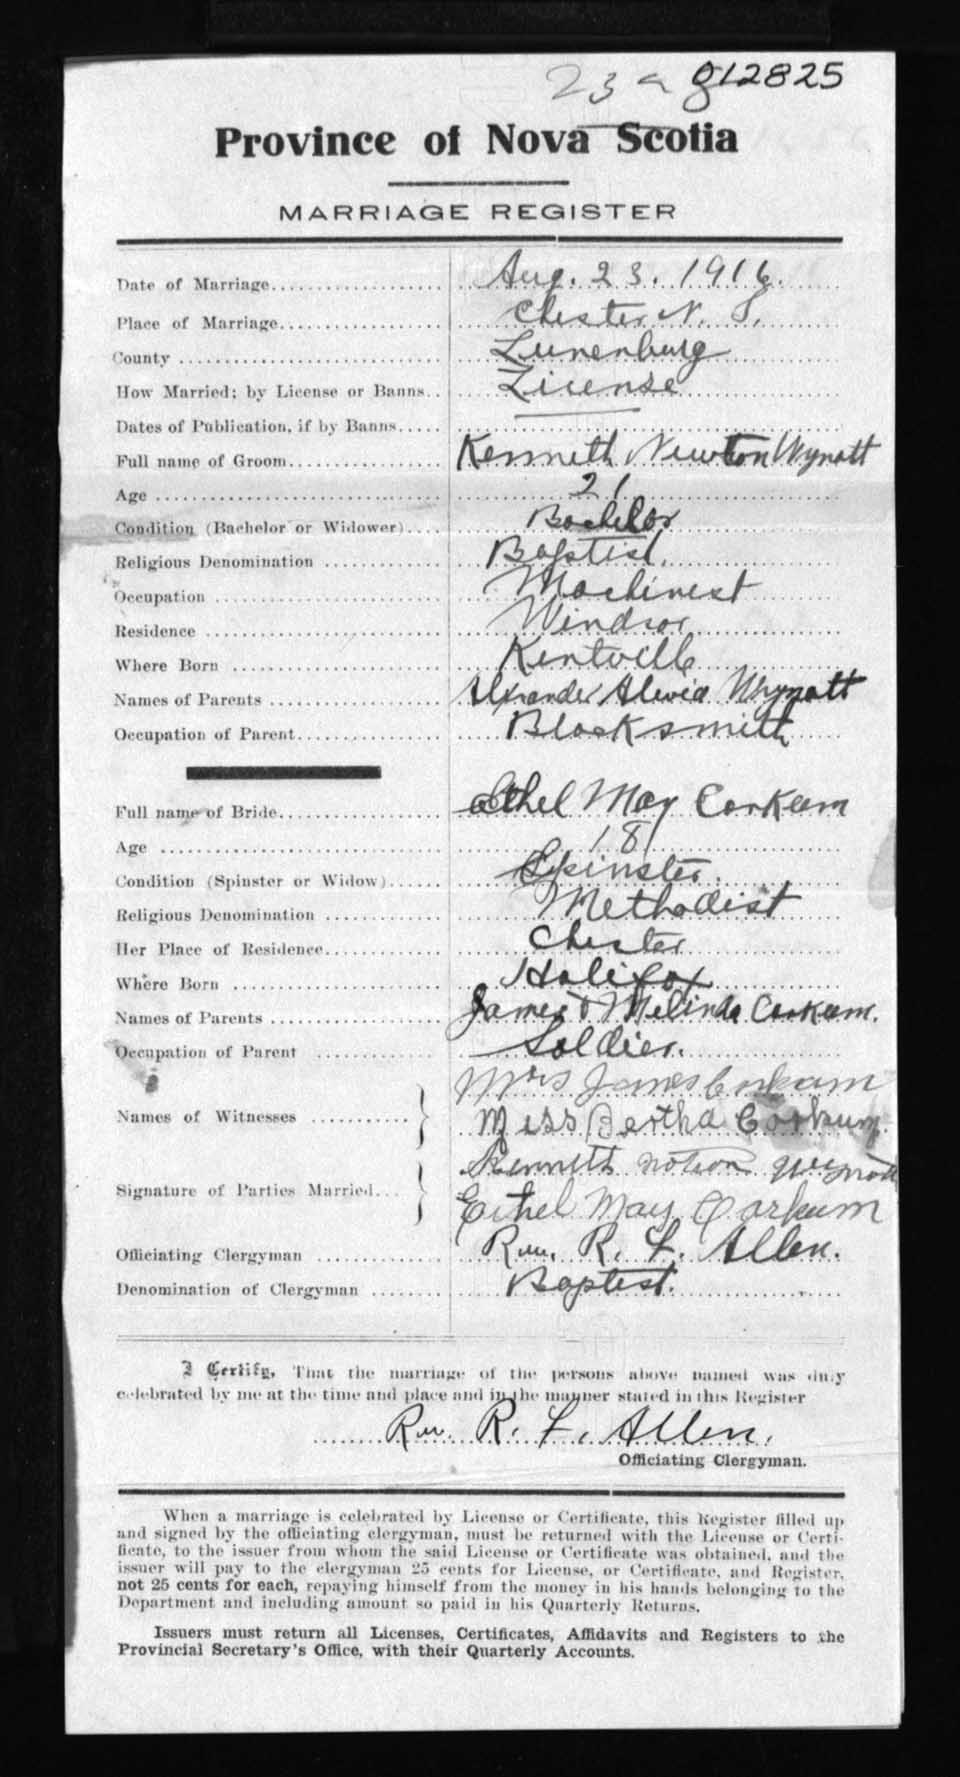 23 a 812825
Province of Nova Scotia
MARRIAGE REGISTER
Date of Marriage.................... Aug. 23. 1916.
Place of Marriage................... Chester N. S.
County ........................... Lunenburg
How Married; by License or Banns.. License
Dates of Publication, if by Banns.....
Full name of Groom.................. Kenneth Newton Wynott
Age ............................. 21
Condition (Bachelor or Widower).... Bachelor
Religious Denomination ............. Baptist.
Occupation ....................... Machinest
Residence ........................ Windsor
Where Born ....................... Kentville
Names of Parents ................... Wynott
Occupation of Parent................. Blacksmith
Full name of Bride................... Ethel May Corkum
Age ............................. 18
Condition (Spinster or Widow)...... Spinster.
Religious Denomination ............. Methodist
Her Place of Residence.............. Chester
Where Born ....................... Halifax
Names of Parents ................... James & Melinda Corkum.
Occupation of Parent .............. Soldier.
Names of Witnesses ........... } Mrs James Corkum
Miss Bertha Corkum.
Signature of Parties Married... } Kenneth notion Wynott
Ethel May Corkum
Officiating Clergyman .............. Rev. R. L. Allen.
Denomination of Clergyman ........ Baptist.
I Certify, That the marriage of the persons above named was duly
celebrated by me at the time and place and in the manner stated in this Register
Rev. R. L. Allen.
Officiating Clergyman.
When a marriage is celebrated by License or Certificate, this Register filled up
and signed by the officiating clergyman, must be returned with the License or Certi-
ficate, to the issuer from whom the said License or Certificate was obtained, and the
issuer will pay to the clergyman 25 cents for License, or Certificate, and Register,
not 25 cents for each, repaying himself from the money in his hands belonging to the
Department and including amount so paid in his Quarterly Returns.
Issuers must return all Licenses, Certificates, Affidavits and Registers to the
Provincial Secretary's Office, with their Quarterly Accounts.